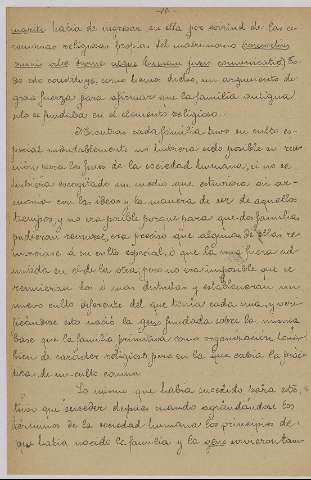 marido había de ingresar en ella por virtud de las ce-
remonias religiosas propias del matrimonio
do esto constituye, como hemos dicho, un argumento de
gran fuerza para afirmar que la familia antigua
solo se fundaba en el elemento religioso.
Mientras cada familia tuvo su culto es-
pecial indudablemente no hubiera sido posible su reu-
nión para los fines de la sociedad humana, si no se
hubiera escogitado un medio que estuviera en ar-
monía con las ideas y la manera de ser de aquellos
tiempos, y no era posible porque para que dos familias
pudieran reunirse, era preciso que alguna de ellas re-
nunciase á su culto especial, ó que la una fuera ad-
mitida en el de la otra, pero no era imposible que se
reunieran dos ó mas distintas y establecieran un
nuevo culto diferente del que tenía cada una, y veri-
ficándose esto nació la gens fundada sobre la misma
base que la familia primitiva como organización tam-
bien de carácter religioso, pero en la que cabía la prác-
tica de un culto comun.
Lo mismo que había sucedido hasta esto,
tuvo que suceder despues cuando agrandándose los
términos de la sociedad humana los principios de
que había nacido la familia y la gens vinieron tam-